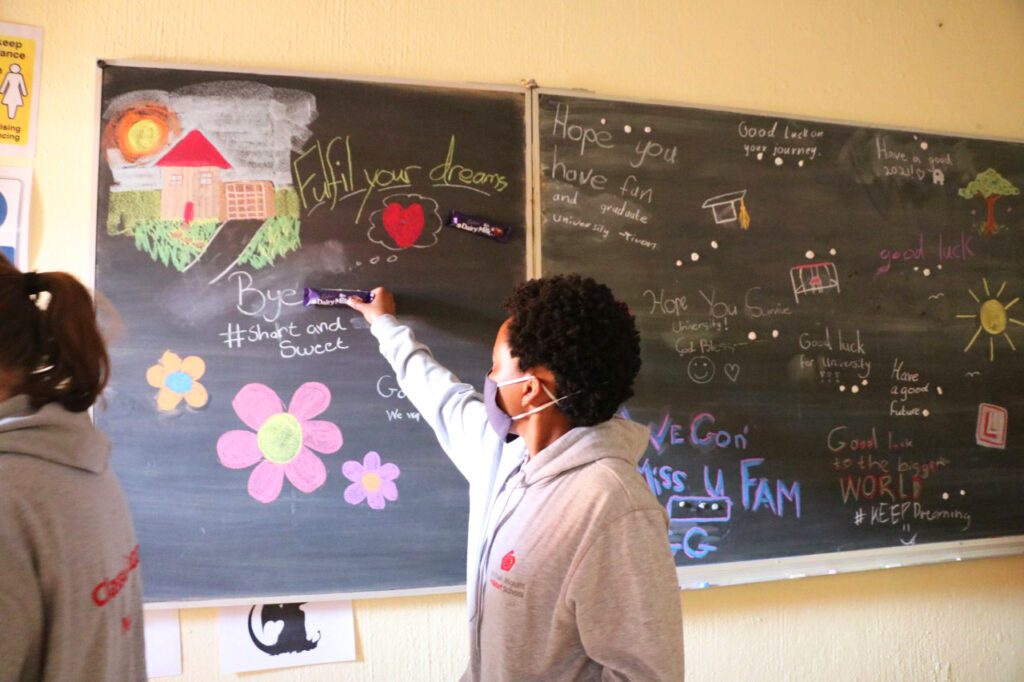 keep
Fulfil your dreams
Dairy Milk
Bye
Dairy Milk
#Short and
Sweet
Hope you
have fun
and graduate
university
Good Luck on
your journey.
Have a good
2021!
good luck
Hope You Survive
University!
God Bless
Good luck
for University
!!!
Have
a good
future
L
Good luck
to the bigger
WORLD
#KEEP Dreaming
We Gon'
Miss U FAM
GG
We
School